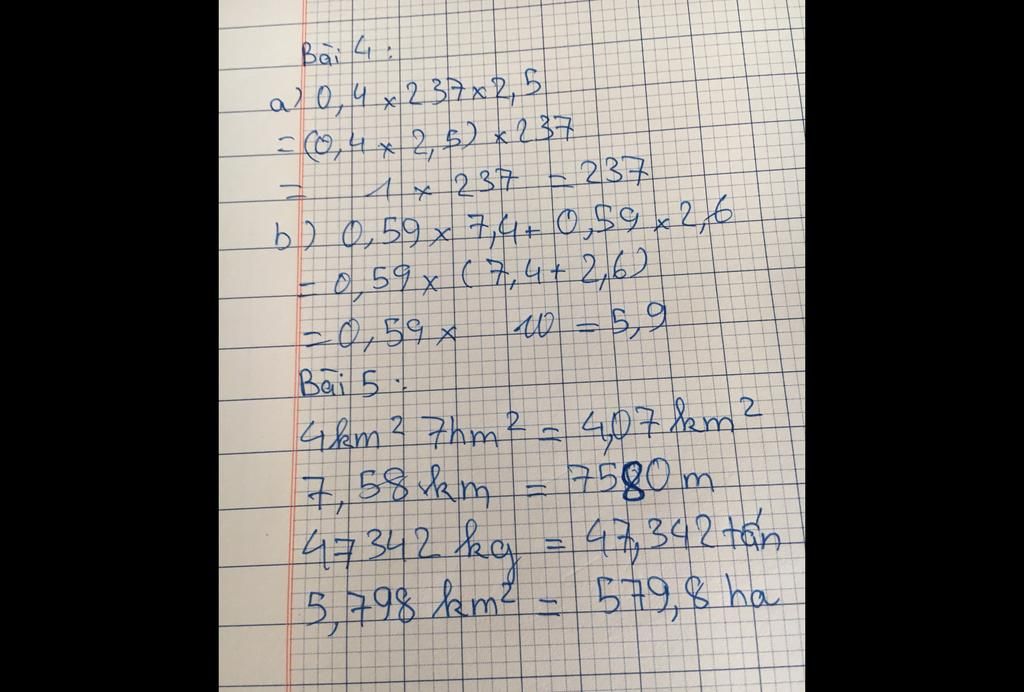 Bài 4 :
a) 0,4 × 237 × 2,5
= (0,4 × 2,5) × 237
= 1 × 237 = 237
b) 0,59 × 7,4 + 0,59 × 2,6
= 0,59 × (7,4 + 2,6)
= 0,59 × 10 = 5,9
Bài 5 :
4km² 7hm² = 4,07 km²
7,58 km = 7580 m
47342 kg = 47,342 tấn
5,798 km² = 579,8 ha